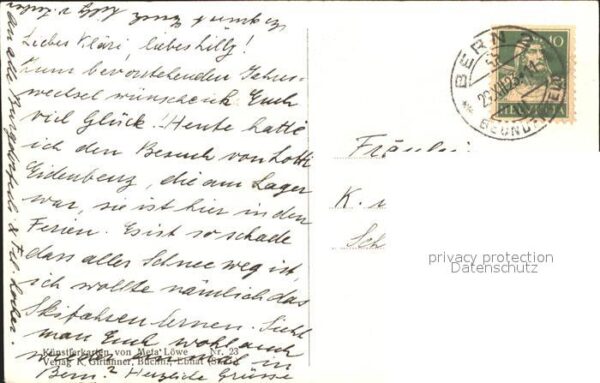 Lieber Kläri, liebes Lilly!
Zum bevorstehenden Jahres-
wechsel wünsche ich Euch
viel Glück!! Heute hatte
ich den Besuch von Lotti
Eidenbenz, die am Lager
war, sie ist hier in den
Ferien. Es ist so schade
dass aller Schnee weg ist,
ich wollte nämlich das
Skifahren lernen. Sieht
man Euch wohl auch
wieder einmal in
Bern? Herzliche Grüsse
an alle
Künstlerkarten von Meta Löwe Nr. 23
Verlag K. Girtanner, Buchh., Ebnat
BERN 2
10
HELVETIA
Fräulein
K.
Sch
privacy protection
Datenschutz